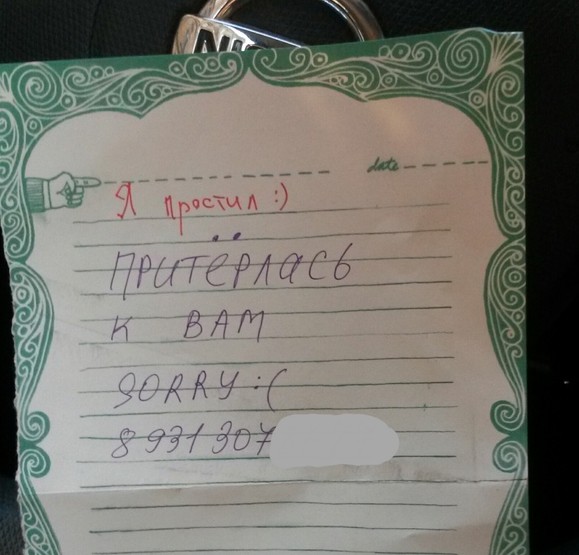 date
Я простил :)
ПРИТЁРЛАСЬ
К ВАМ
SORRY :(
8931307